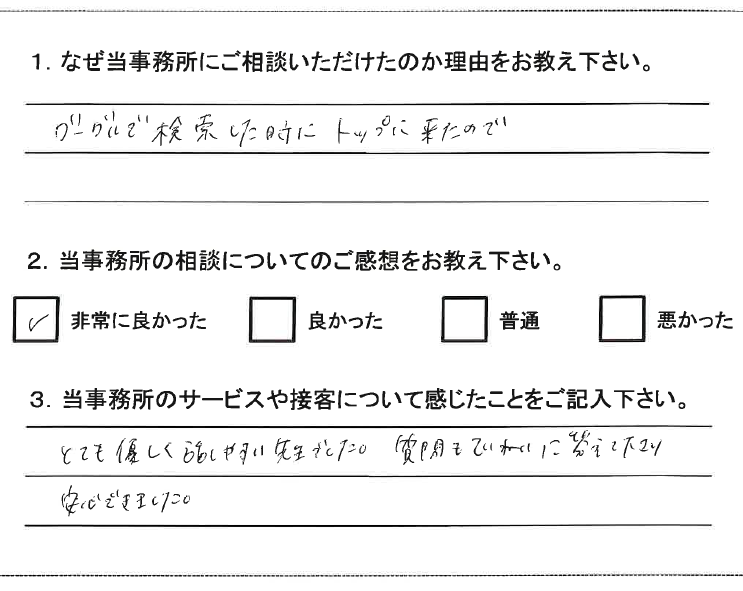 1. なぜ当事務所にご相談いただけたのか理由をお教え下さい。
グーグルで検索した時にトップに来たので
2. 当事務所の相談についてのご感想をお教え下さい。
✓ 非常に良かった 良かった 普通 悪かった
3. 当事務所のサービスや接客について感じたことをご記入下さい。
とても優しく話しやすい先生でした。質問もていねいに答えて下さり
安心できました。